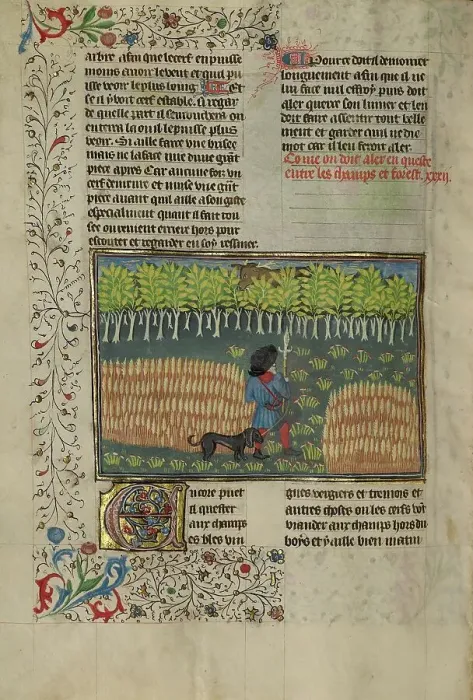 arbre afin que le cerf en puisse
moins avoir le vent et quil pu
isse veoir le plus loing. Et
se il y voit cerf estable. si regar
de quelle part il
plus
Si aille faire une brisee
mais ne la face mie dune grāt
piece apres Car aucune foiz un
cerf demeure et muse une grāt
piece avant quil aille a son giste
especialment quant il fait rou
see ou vienent hors pour
escouter et regarder en soy ressuier.
Pource doit il demourer
longuement afin que il ne
lui face nul effroy puis doit
aler querre son limier et len
doit faire tout belle
ment et garder quil ne die
mot car il len feroit aler.
Comment on doit aler en queste
entre les champs et forest. xxxii.
Encore puet
il quester
aux champs
es bles vin
gnes vergiers et tremois et
autres choses ou les cerfs vōt
viander aux champs hors du
boys et y aille bien matin